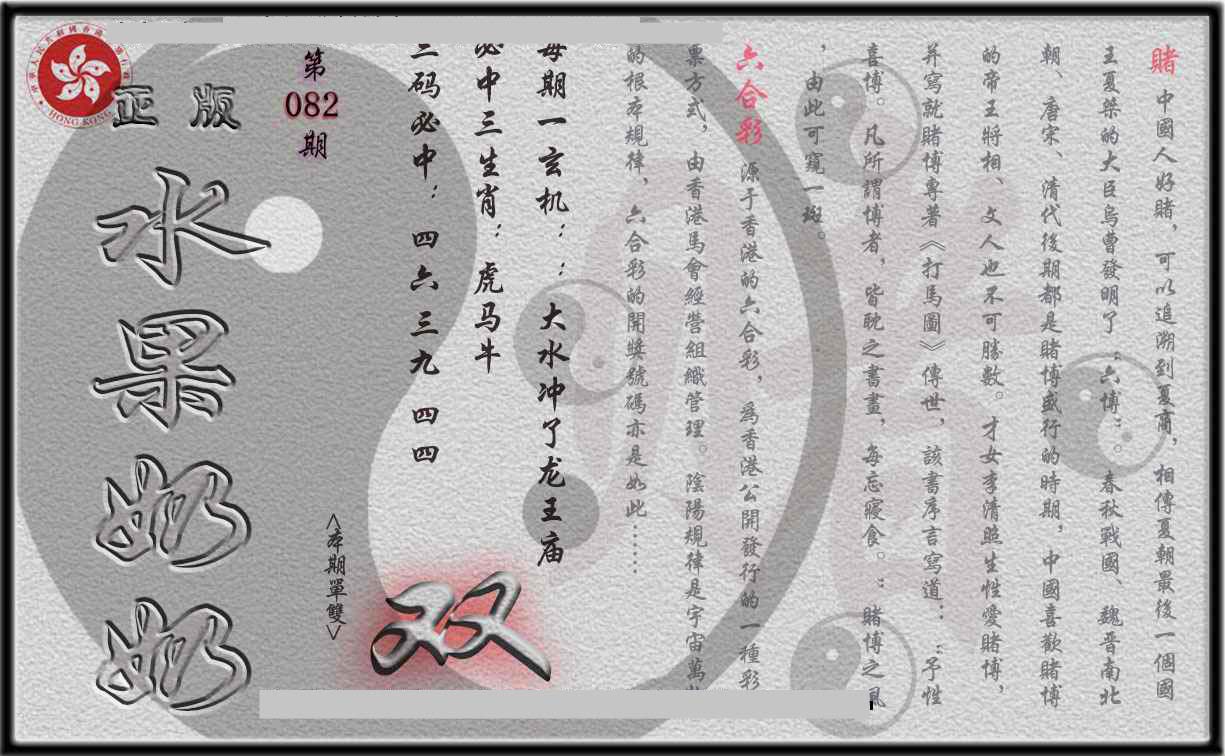 賭 中國人好賭，可以追溯到夏商，相傳夏朝最後一個國
王夏桀的大臣烏曹發明了“六博”。春秋戰國、魏晋南北
朝、唐宋、清代後期都是賭博盛行的時期，中國喜歡賭博
的帝王將相、文人也不可勝數。才女李清照生性愛賭博，
并寫就賭博專著《打馬圖》傳世，該書序言寫道：“予性
喜博。凡所謂博者，皆耽之書畫，每忘寢食。”賭博之風
，由此可窺一斑。
六合彩 源于香港的六合彩，為香港公開發行的一種彩
票方式，由香港馬會經營組織管理。陰陽規律是宇宙萬物
的根本規律，六合彩的開獎號碼亦是如此……
每期一玄机：：大水冲了龙王庙
必中三生肖：虎马牛
三码必中：四六 三九 四四
双
<本期單雙>
第
082
期
正版
水果奶奶
HONG KONG